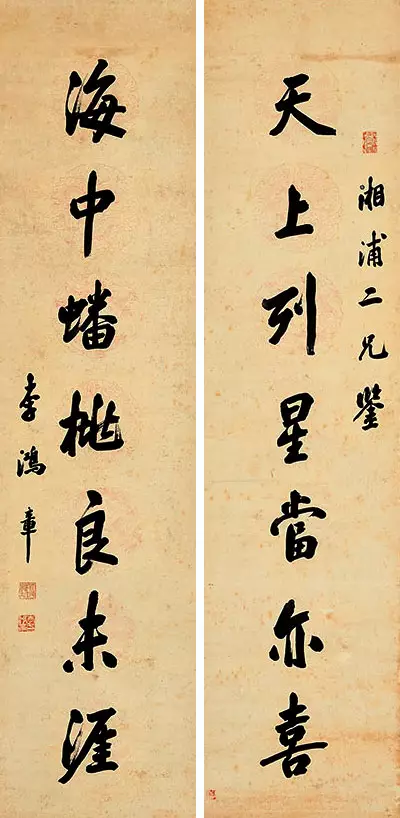 湘浦二兄鑒
天上列星當亦喜
海中蟠桃良未涯
李鴻章